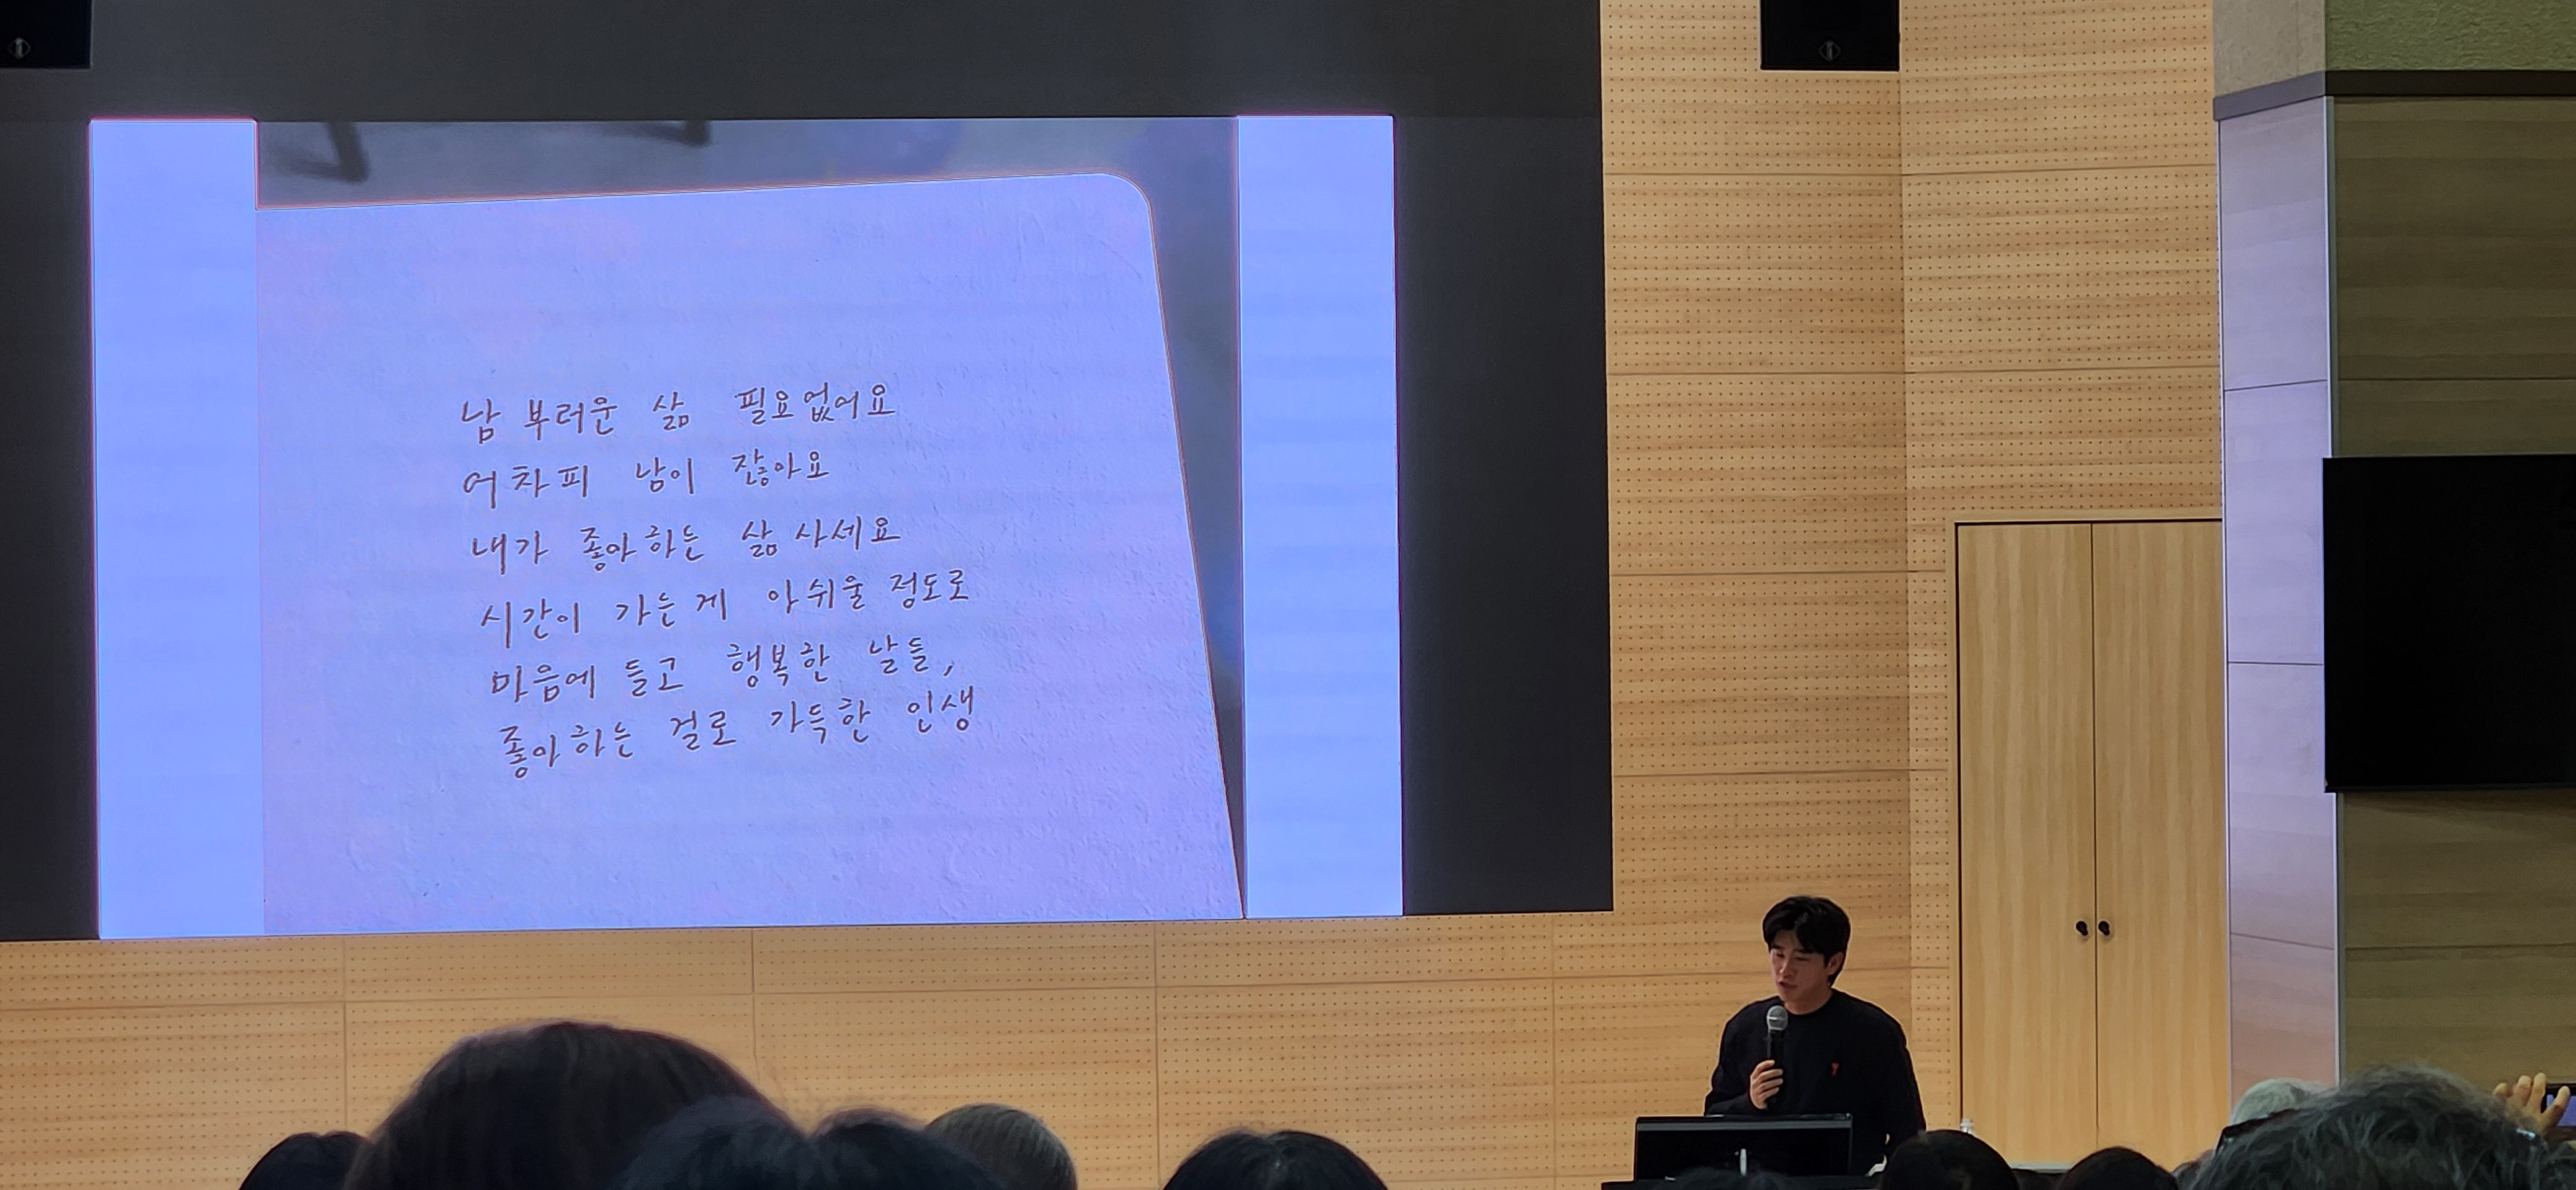 남 부러운 삶 필요없어요
어차피 남이 잖아요
내가 좋아하는 삶 사세요
시간이 가는게 아쉬울 정도로
마음에 들고 행복한 날들,
좋아하는 걸로 가득한 인생